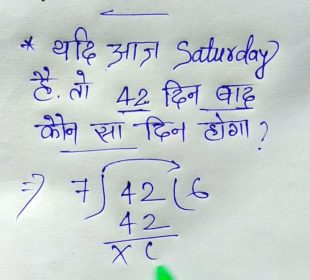 * यदि आज Saturday
है. तो 42 दिन बाद
कौन सा दिन होगा?
=> 7) 42 (6
42
x